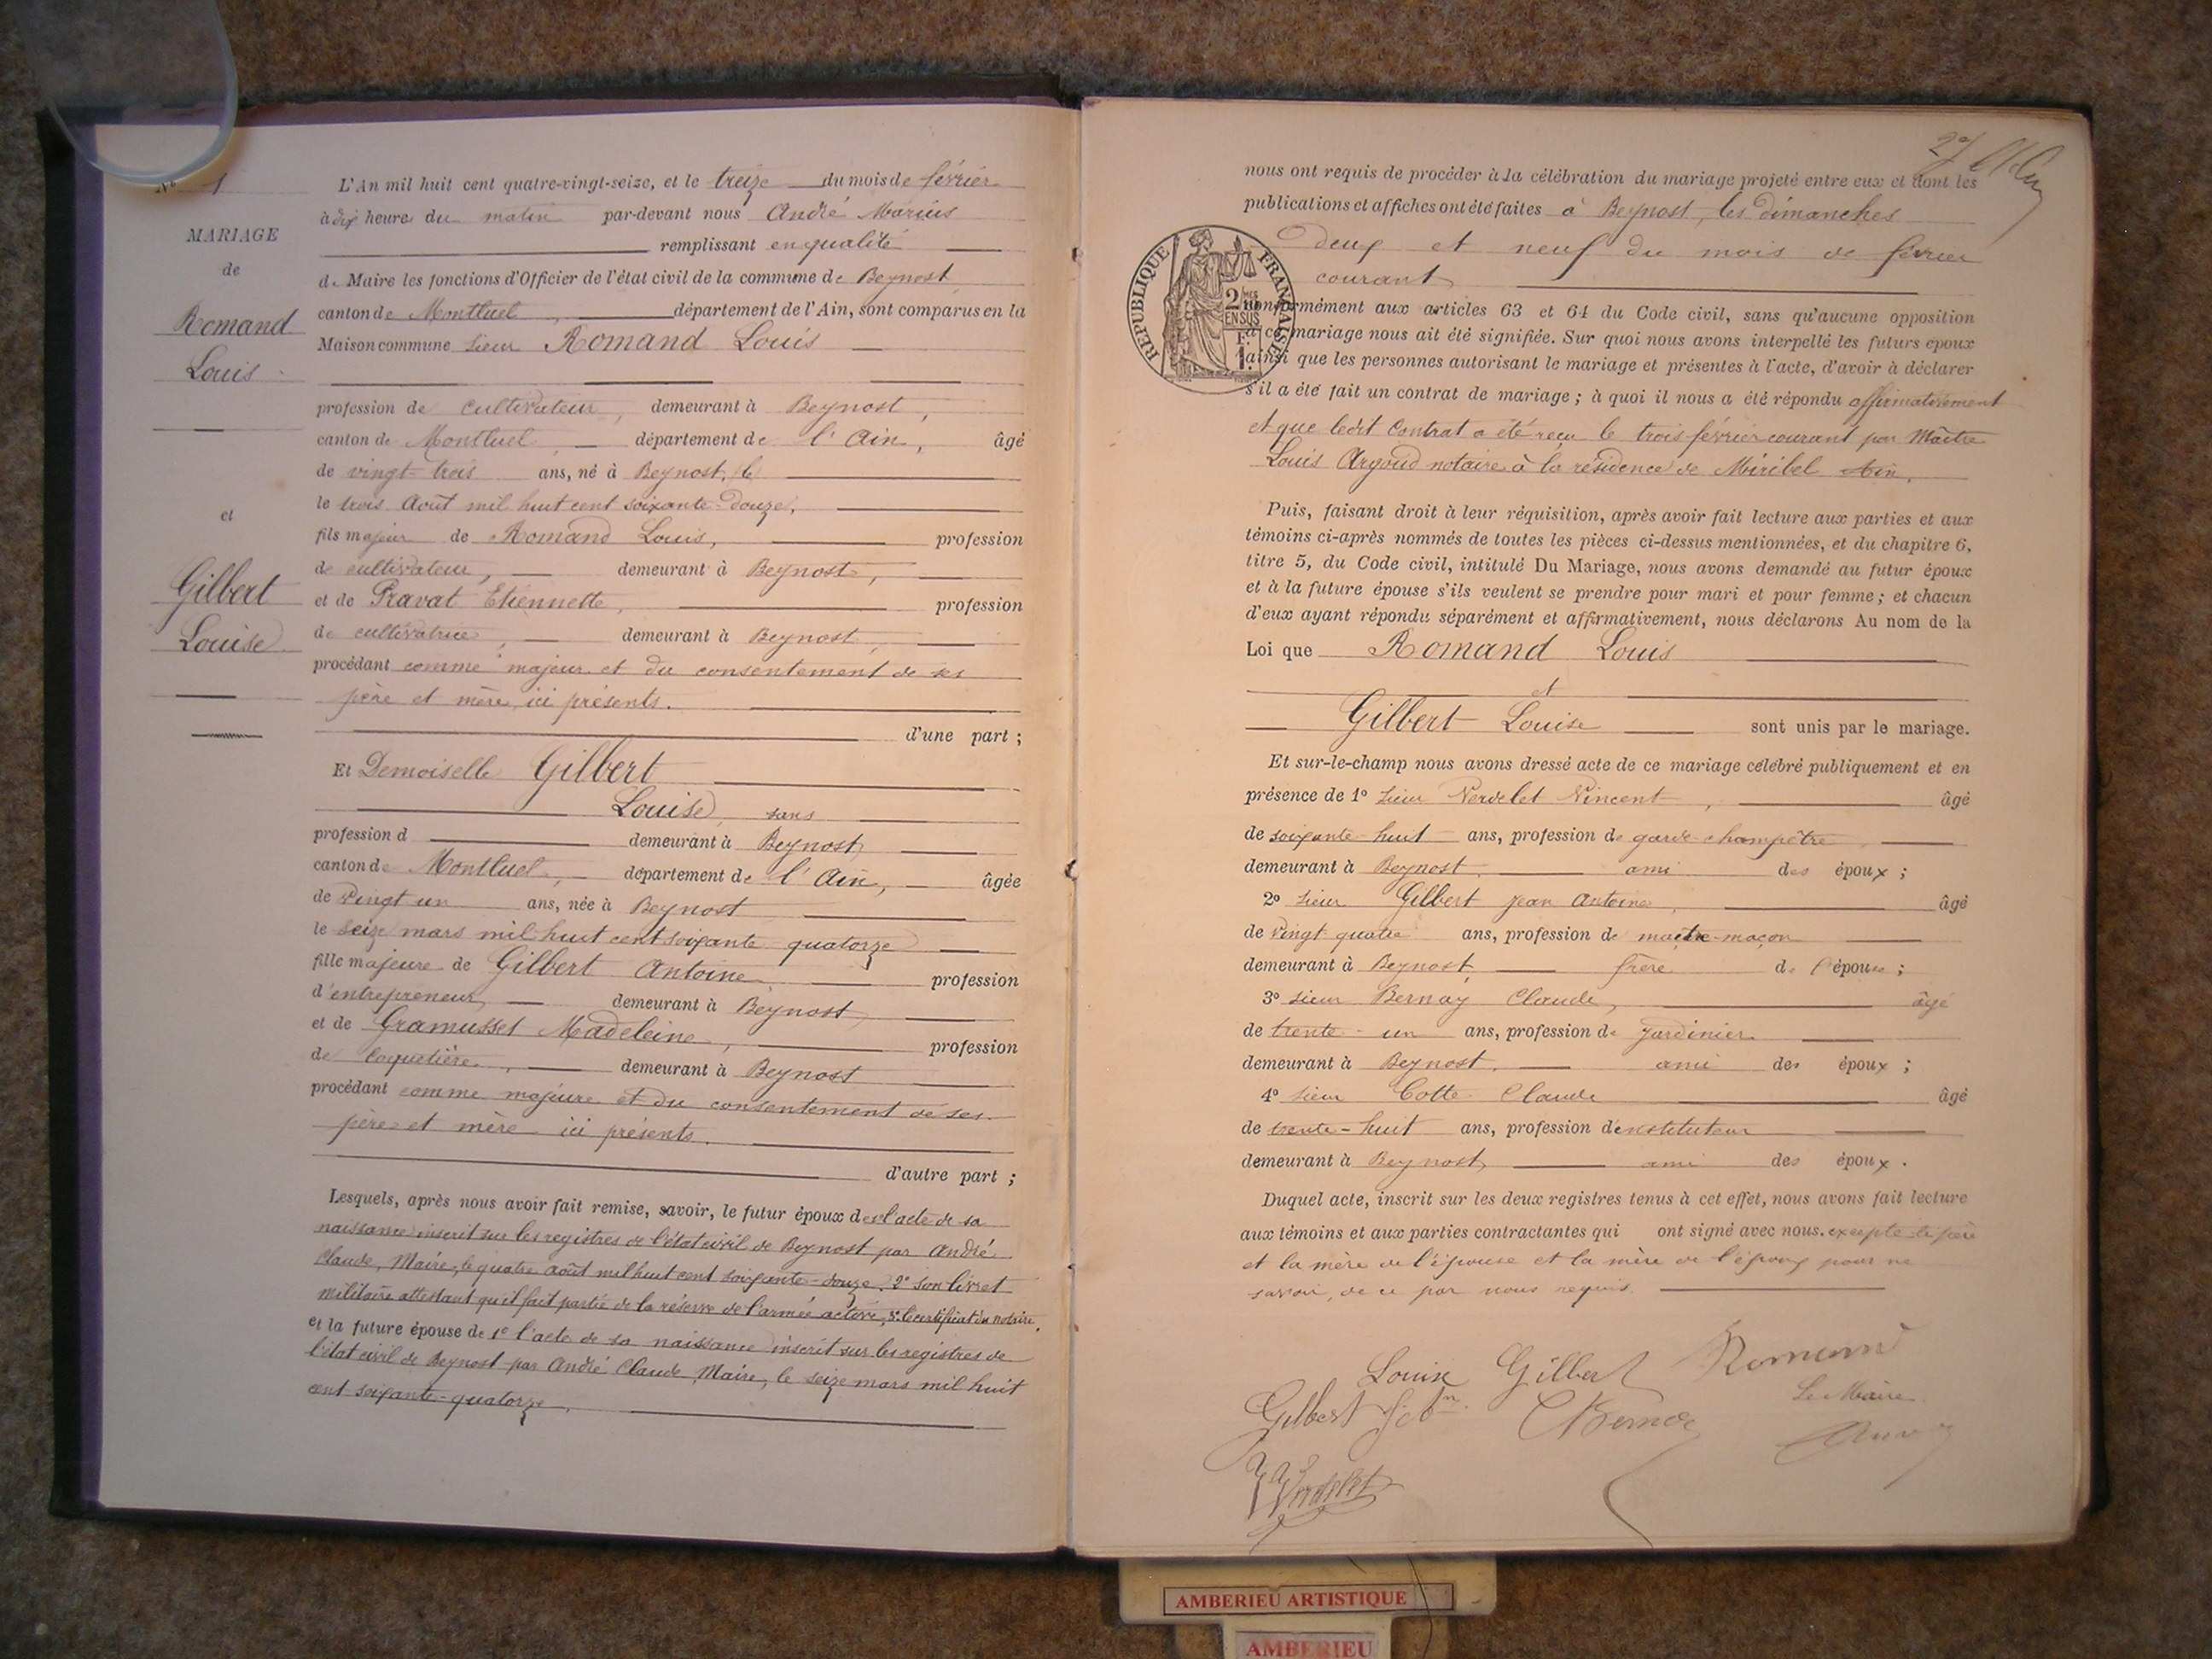 No 1
MARIAGE
de
Romand
Louis
et
Gilbert
Louise
L'An mil huit cent quatre-vingt-seize, et le treize du mois de février
à dix heure du matin par-devant nous André Marius
remplissant en qualité
de Maire les fonctions d'Officier de l'état civil de la commune de Beynost
canton de Montluel, département de l'Ain, sont comparus en la
Maison commune sieur Romand Louis
profession de cultivateur, demeurant à Beynost,
canton de Montluel, département de l'Ain, âgé
de vingt-trois ans, né à Beynost, le
le trois Août mil huit cent soixante-douze,
fils majeur de Romand Louis, profession
de cultivateur, demeurant à Beynost,
et de Pravat Etiennette, profession
de cultivatrice, demeurant à Beynost,
procédant comme majeur et du consentement de ses
père et mère ici présents.
d'une part ;
Et Demoiselle Gilbert
Louise, sans
profession d demeurant à Beynost
canton de Montluel, département de l'Ain, âgée
de vingt un ans, née à Beynost
le seize mars mil huit cent soixante quatorze
fille majeure de Gilbert Antoine profession
d'entrepreneur, demeurant à Beynost
et de Gramusset Madeleine, profession
de coquetière, demeurant à Beynost
procédant comme majeure et du consentement de ses
père et mère ici présents.
d'autre part ;
Lesquels, après nous avoir fait remise, savoir, le futur époux de l'acte de sa
naissance inscrit sur les registres de l'état civil de Beynost par André
Claude, Maire, le quatre août mil huit cent soixante-douze. 2° son livret
militaire attestant qu'il fait partie de la réserve de l'armée active, 3° le certificat du notaire.
et la future épouse de 1° l'acte de sa naissance inscrit sur les registres de
l'état civil de Beynost par André Claude, Maire, le seize mars mil huit
cent soixante-quatorze.
nous ont requis de procéder à la célébration du mariage projeté entre eux et dont les
publications et affiches ont été faites à Beynost, les dimanches
deux et neuf du mois de février
courant
REPUBLIQUE FRANÇAISE
2 10MES
EN SUS
1F.
conformément aux articles 63 et 64 du Code civil, sans qu'aucune opposition
à ce mariage nous ait été signifiée. Sur quoi nous avons interpellé les futurs époux
ainsi que les personnes autorisant le mariage et présentes à l'acte, d'avoir à déclarer
s'il a été fait un contrat de mariage ; à quoi il nous a été répondu affirmativement
et que ledit contrat a été reçu le trois février courant par Maître
Louis Argoud notaire à la résidence de Miribel Ain.
Puis, faisant droit à leur réquisition, après avoir fait lecture aux parties et aux
témoins ci-après nommés de toutes les pièces ci-dessus mentionnées, et du chapitre 6,
titre 5, du Code civil, intitulé Du Mariage, nous avons demandé au futur époux
et à la future épouse s'ils veulent se prendre pour mari et pour femme ; et chacun
d'eux ayant répondu séparément et affirmativement, nous déclarons Au nom de la
Loi que Romand Louis
et
Gilbert Louise sont unis par le mariage.
Et sur-le-champ nous avons dressé acte de ce mariage célébré publiquement et en
présence de 1° sieur Verdelet Vincent, âgé
de soixante-huit ans, profession de garde-champêtre
demeurant à Beynost, ami des époux ;
2° sieur Gilbert Jean Antoine, âgé
de vingt quatre ans, profession de maître-maçon
demeurant à Beynost, frère de l'épouse ;
3° sieur Bernay Claude, âgé
de trente-un ans, profession de jardinier
demeurant à Beynost, ami des époux ;
4° sieur Cotte Claude âgé
de trente-huit ans, profession d'instituteur
demeurant à Beynost, ami des époux.
Duquel acte, inscrit sur les deux registres tenus à cet effet, nous avons fait lecture
aux témoins et aux parties contractantes qui ont signé avec nous. excepté le père
et la mère de l'épouse et la mère de l'époux pour ne
savoir, de ce par nous requis.
Louise Gilbert Romand
Le Maire
Gilbert
Verdelet
AMBERIEU ARTISTIQUE
AMBERIEU